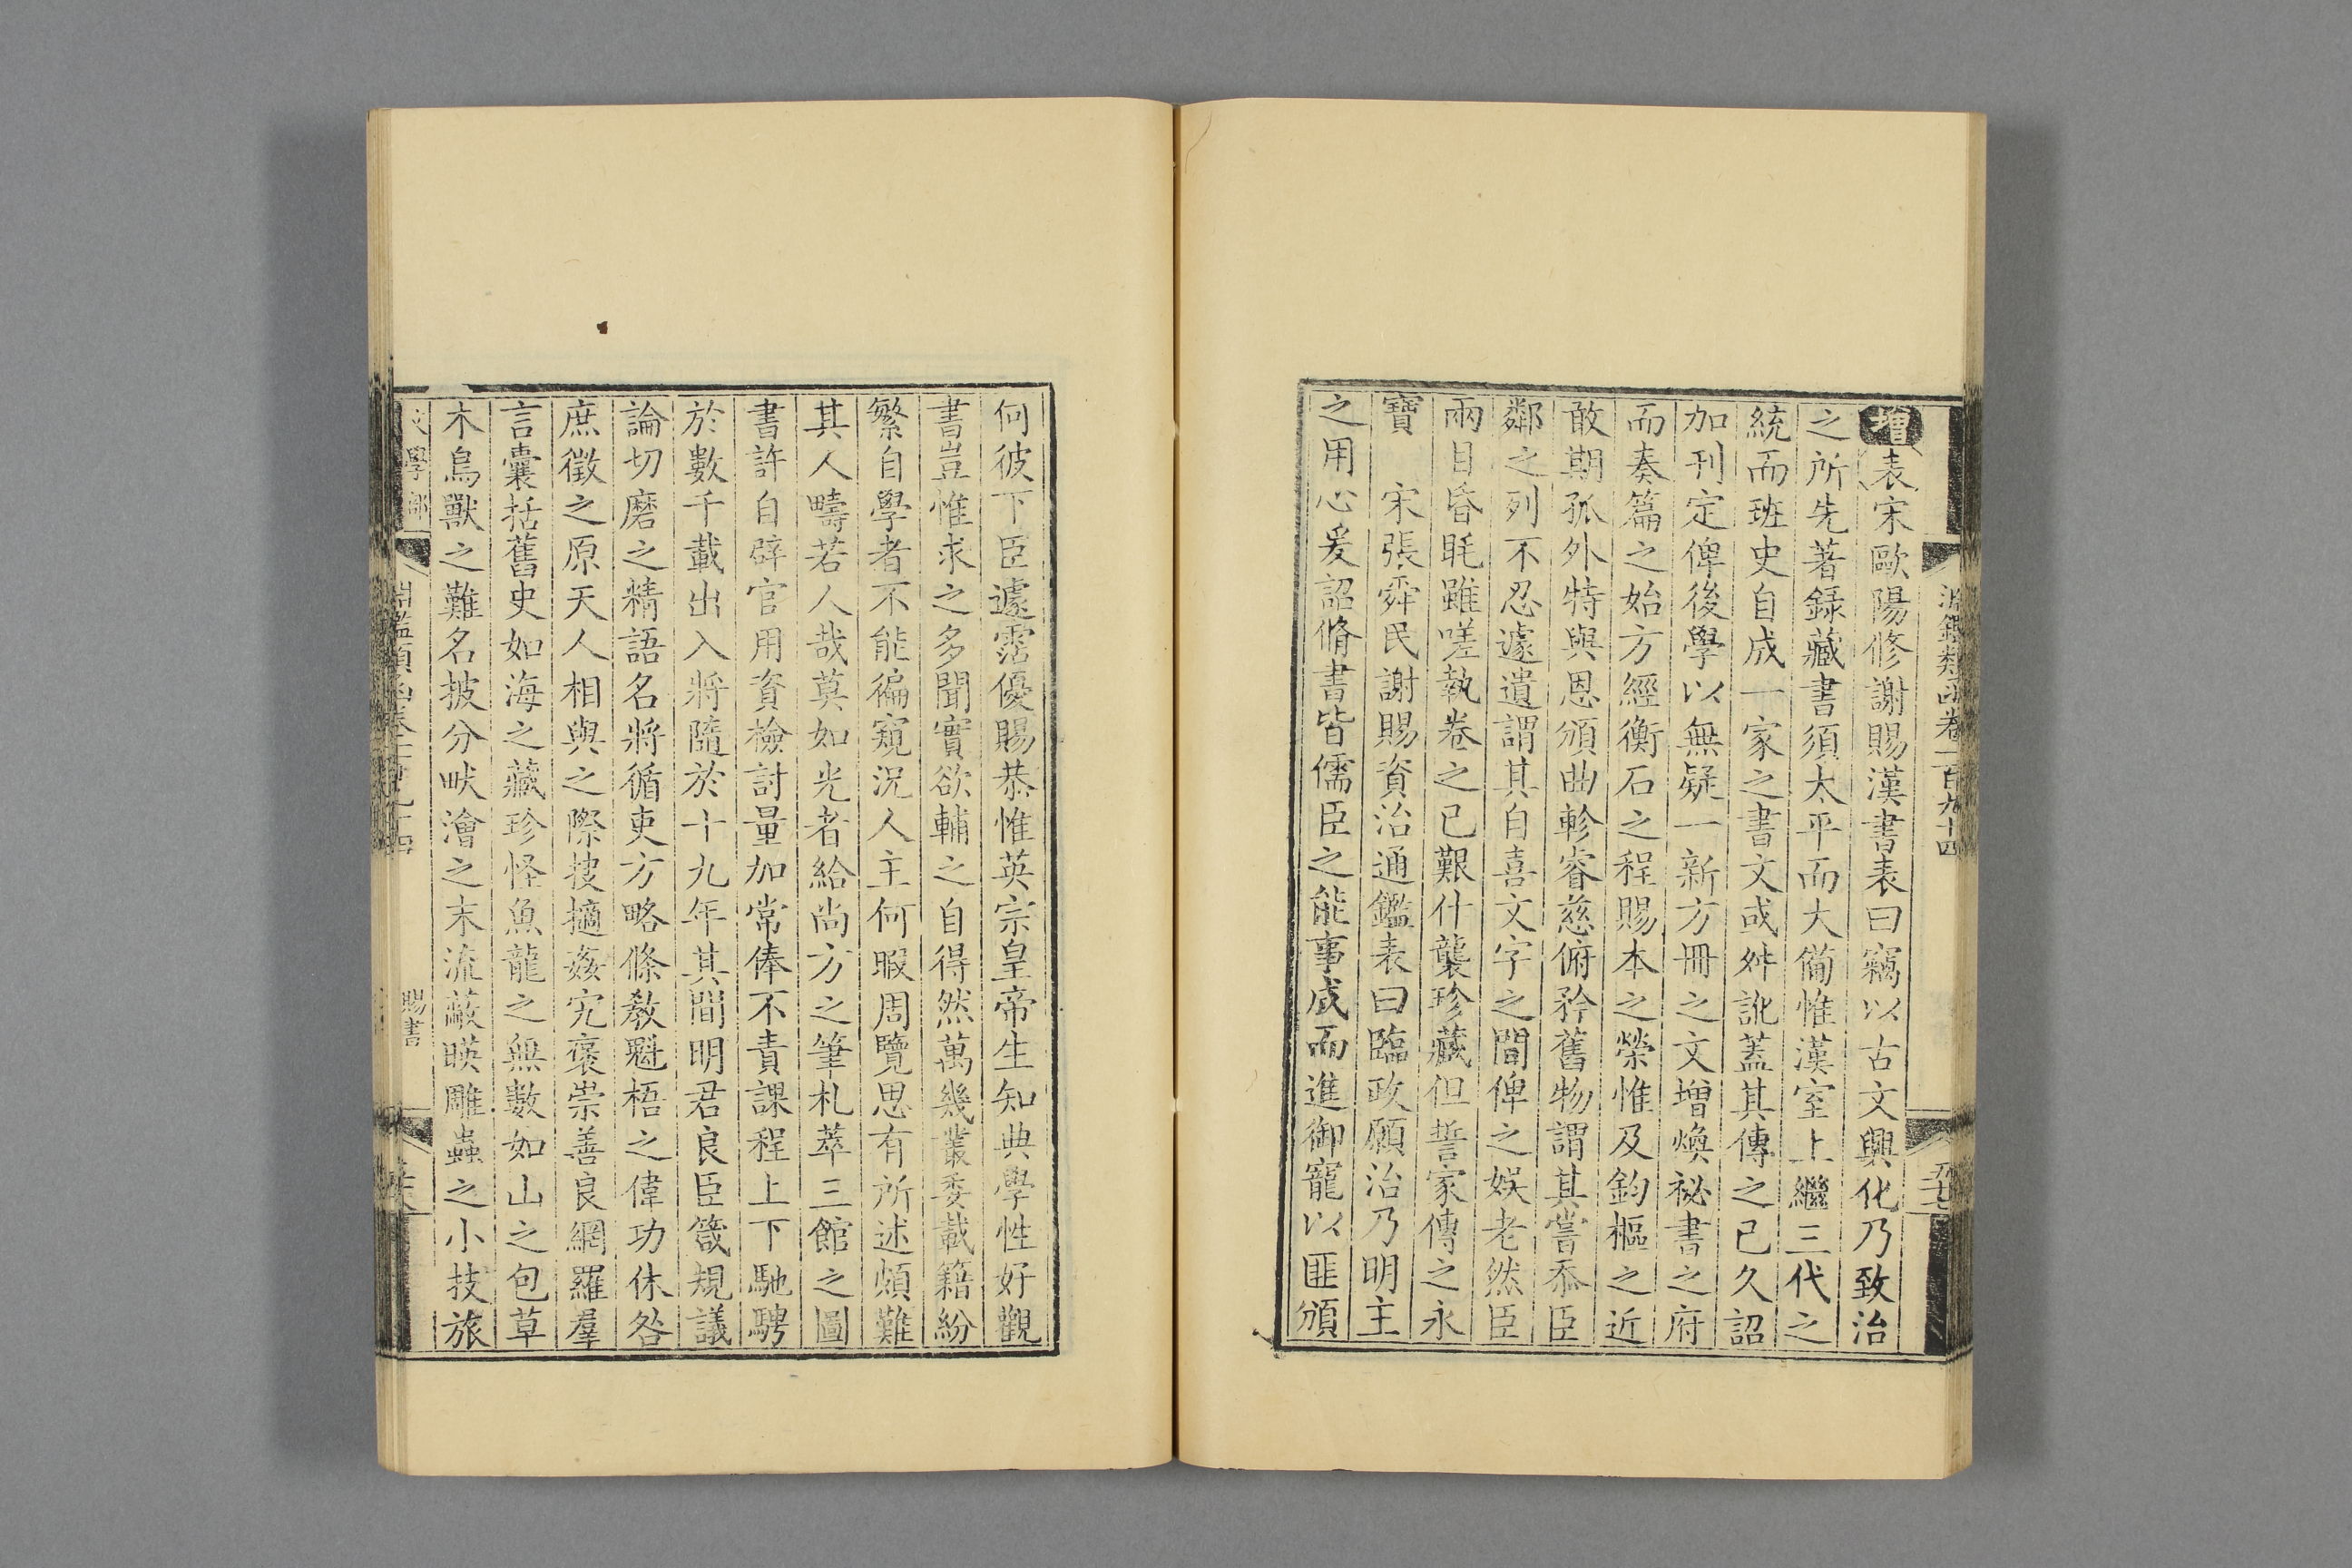 淵鑑類函卷一百九十四
增表宋歐陽修謝賜漢書表曰竊以古文興化乃致治
之所先著錄藏書須太平而大僃惟漢室上繼三代之
統而班史自成一家之書文或舛訛蓋其傳之已久詔
加刊定俾後學以無疑一新方冊之文增煥祕書之府
而奏篇之始方經衡石之程賜本之榮惟及鈞樞之近
敢期孤外特與恩頒曲軫睿慈俯矜舊物謂其嘗忝臣
鄰之列不忍遽遺謂其自喜文字之間俾之娛老然臣
兩目昏眊雖嗟執卷之已艱什襲珍藏但誓家傳之永
寶　宋張舜民謝賜資治通鑑表曰臨政願治乃明主
之用心爰詔脩書皆儒臣之能事成而進御寵以匪頒
何彼下臣遽霑優賜恭惟英宗皇帝生知典學性好觀
書豈惟求之多聞實欲輔之自得然萬幾叢委載籍紛
繁自學者不能徧窺況人主何暇周覽思有所述頗難
其人疇若人哉莫如光者給尚方之筆札萃三館之圖
書許自辟官用資檢討量加常俸不責課程上下馳騁
於數千載出入將隨於十九年其間明君良臣箴規議
論切磨之精語名將循吏方略條教魁梧之偉功休咎
庶徵之原天人相與之際摟擿姦宄褒崇善良網羅羣
言囊括舊史如海之藏珍怪魚龍之無數如山之包草
木鳥獸之難名披分畎澮之末流蔽暎雕蟲之小技旅
賜書